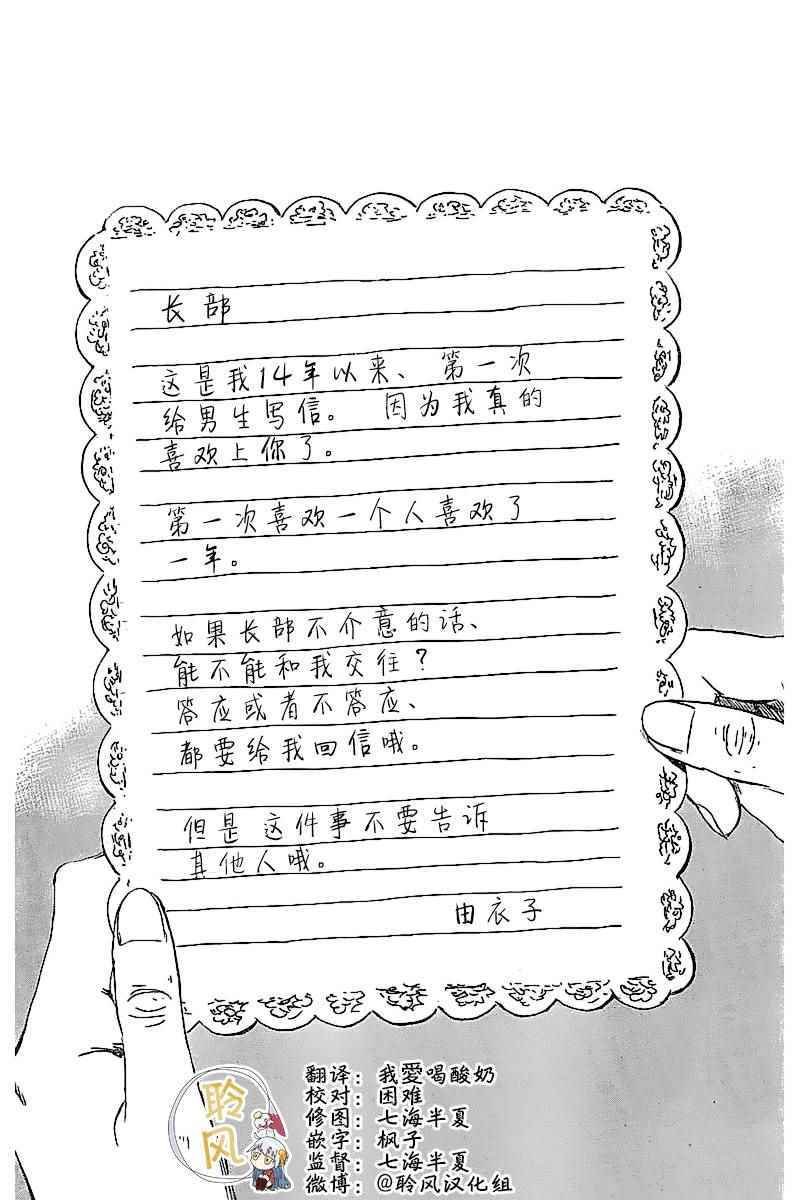 长部
这是我14年以来、第一次
给男生写信。 因为我真的
喜欢上你了。
第一次喜欢一个人喜欢了
一年。
如果长部不介意的话、
能不能和我交往？
答应或者不答应、
都要给我回信哦。
但是这件事不要告诉
其他人哦。
由衣子
聆风
翻译：我愛喝酸奶
校对：困难
修图：七海半夏
嵌字：枫子
监督：七海半夏
微博：@聆风汉化组